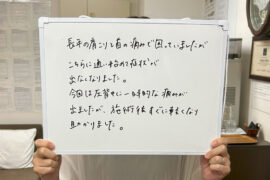 長年の肩こりと首の痛みで困っていましたが
こちらに通い始めて症状が
出なくなりました。
今回は左背中に一時的な痛みが
出ましたが、施術後すぐに軽くなり
助かりました。